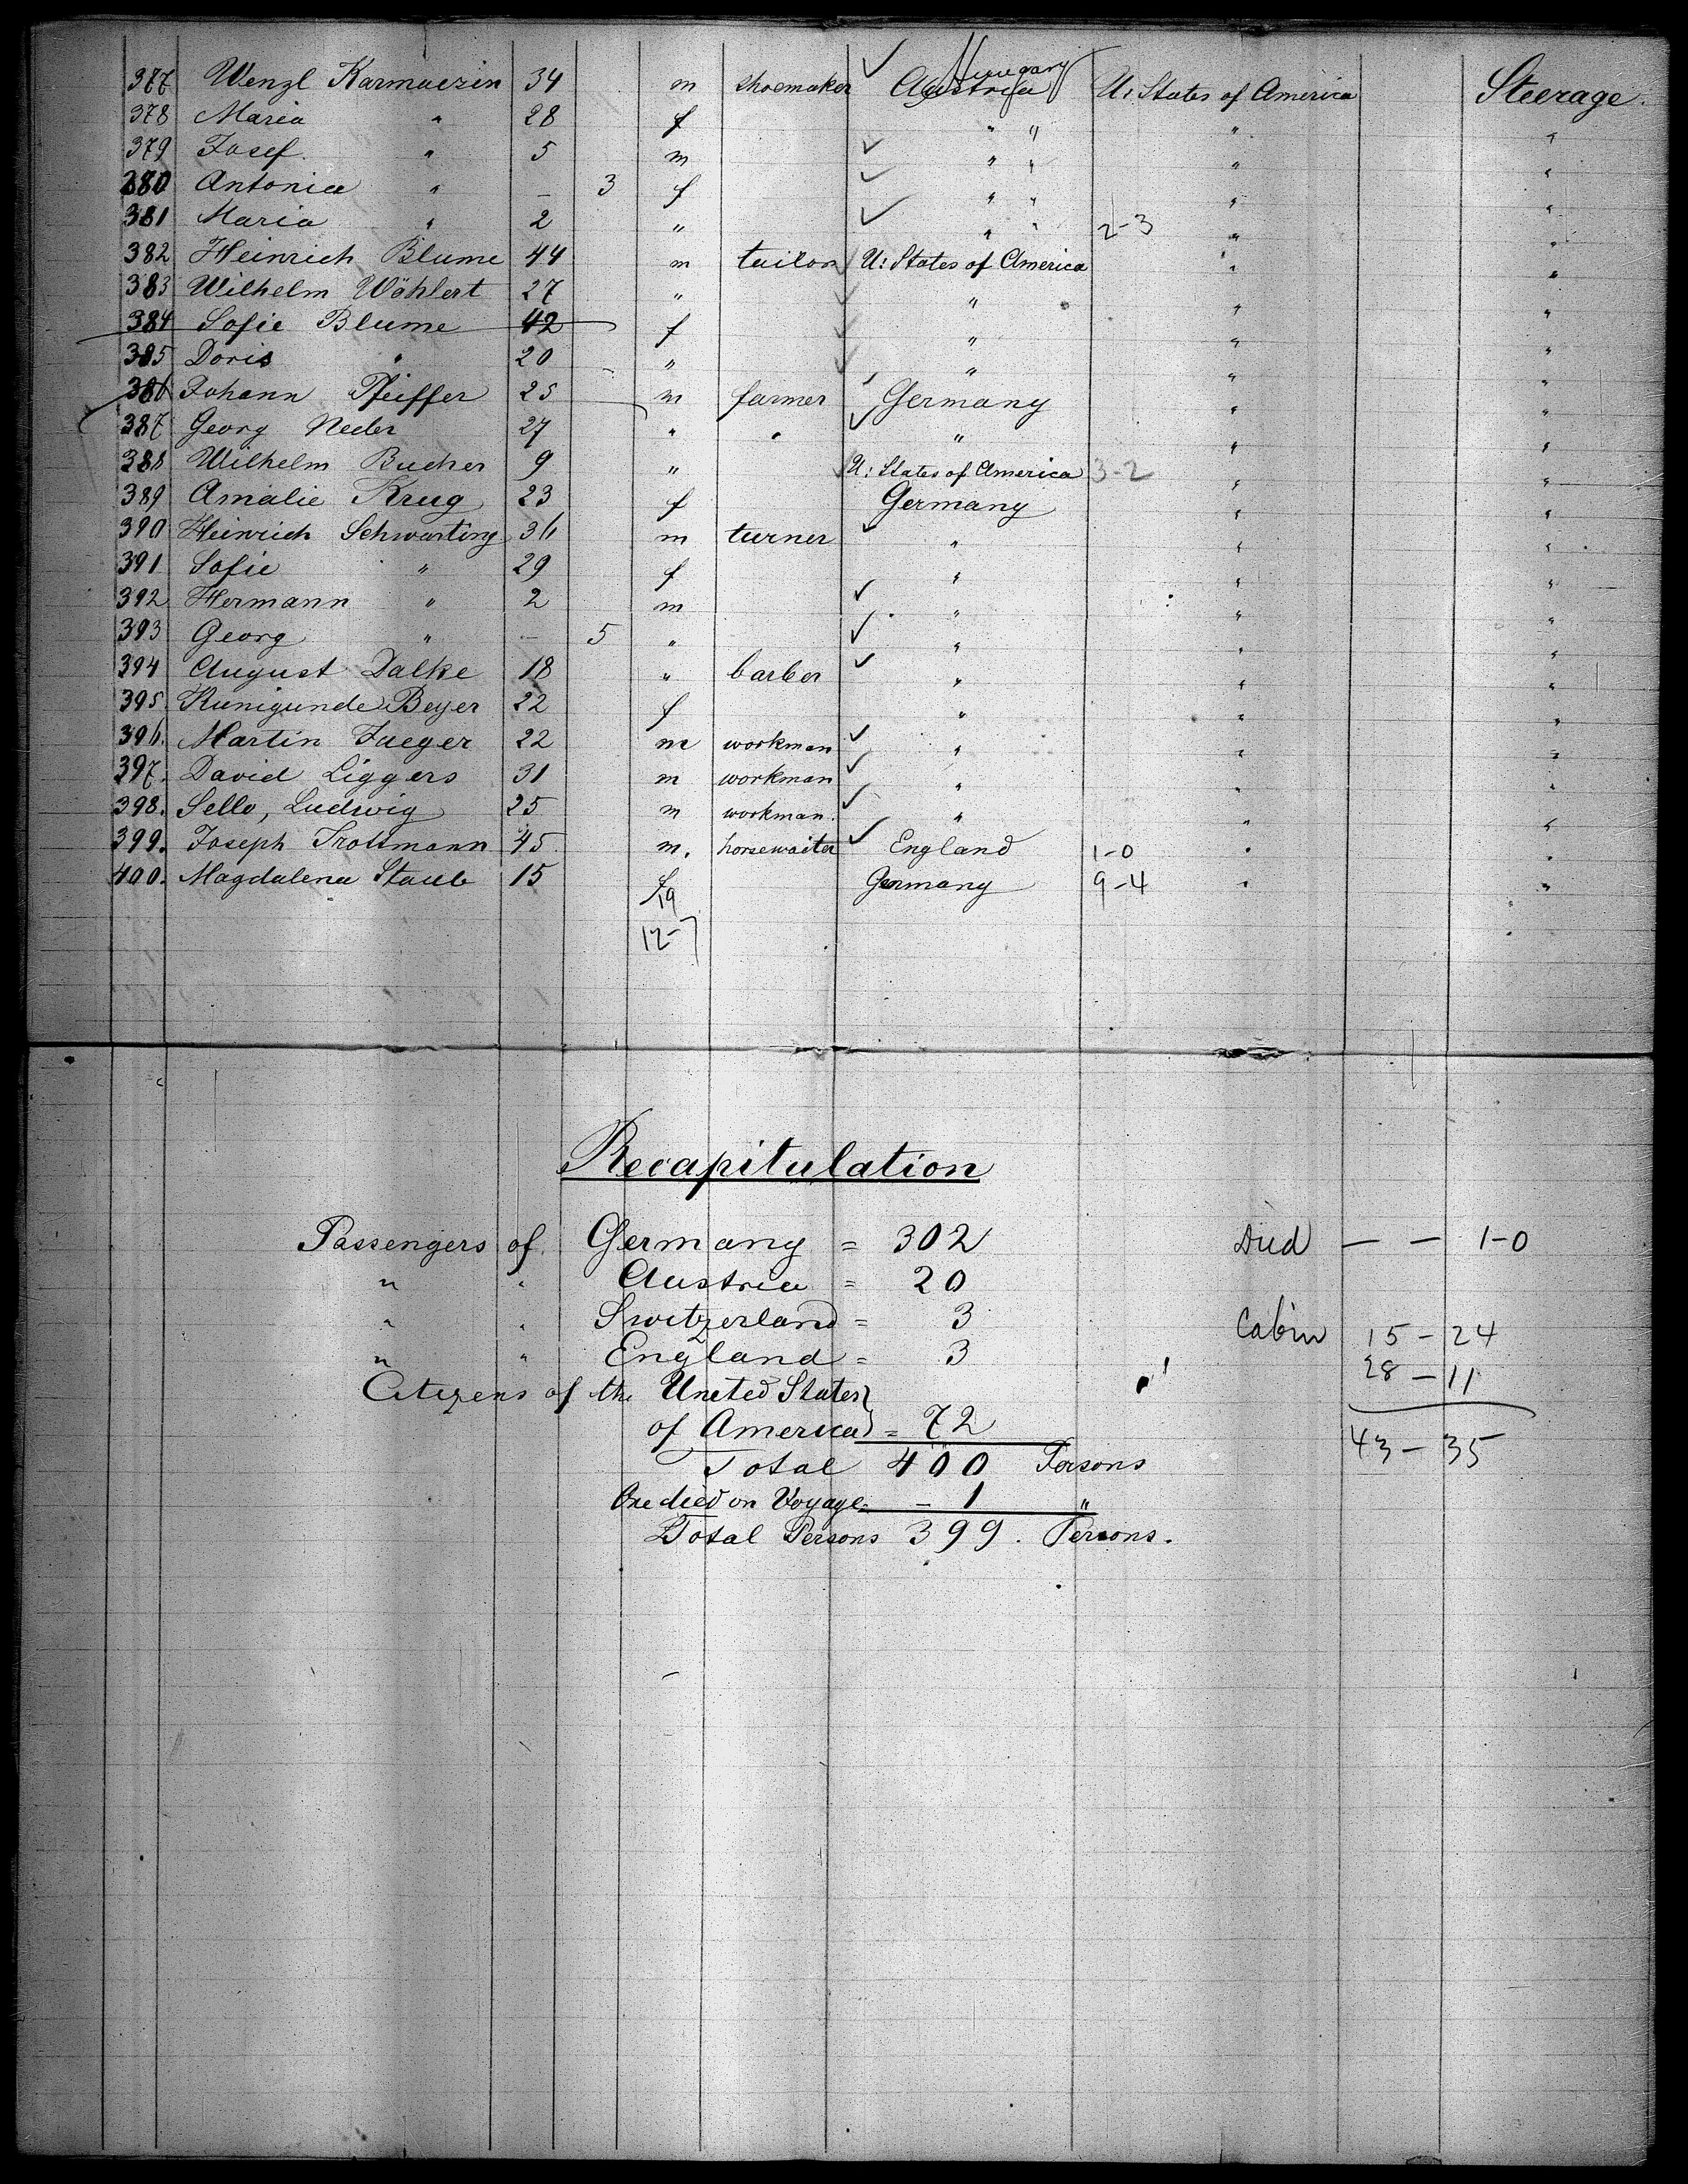 377 Wenzl Karmaczin 34 m shoemaker Austria Hungary U: States of America Steerage.
378 Maria " 28 f " " " "
379 Josef " 5 m " " " "
380 Antonia " – 3 f " " " "
381 Maria " 2 " " " 2-3 " "
382 Heinrich Blume 44 m tailor U: States of America " "
383 Wilhelm Wöhlert 27 " " " "
384 Sofie Blume 42 f " " "
385 Doris " 20 " " " "
386 Johann Pfeiffer 25 m farmer Germany " "
387 Georg Neder 27 " " " " "
388 Wilhelm Bucher 9 " U: States of America 3-2 " "
389 Amalie Krug 23 f Germany " "
390 Heinrich Schwarting 36 m turner " " "
391 Sofie " 29 f " " "
392 Hermann " 2 m " " "
393 Georg " – 5 " " " "
394 August Dalke 18 " barber " " "
395. Kunigunde Beyer 22 f " " "
396. Martin Jaeger 22 m workman " " "
397. David Liggers 31 m workman " " "
398. Sello, Ludwig 25 m workman. " " "
399. Joseph Trottmann 45. m. horsewaiter England 1-0 " "
400. Magdalena Staub 15 f Germany 9-4 " "
19
12-7
Recapitulation
Passengers of Germany = 302 Died — — 1-0
" " Austria = 20
" " Switzerland = 3 Cabin 15-24
" " England = 3 28-11
Citizens of the United States
of America = 72 43-35
Total 400 Persons
One died on Voyage – 1 "
Total Persons 399. Persons.